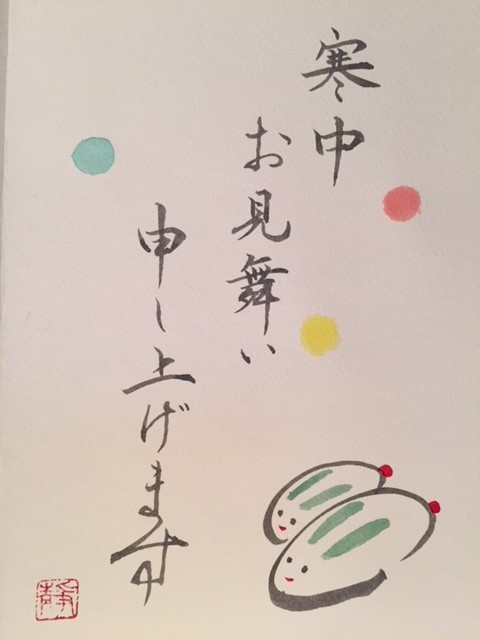 寒中
お見舞い
申し上げます
静